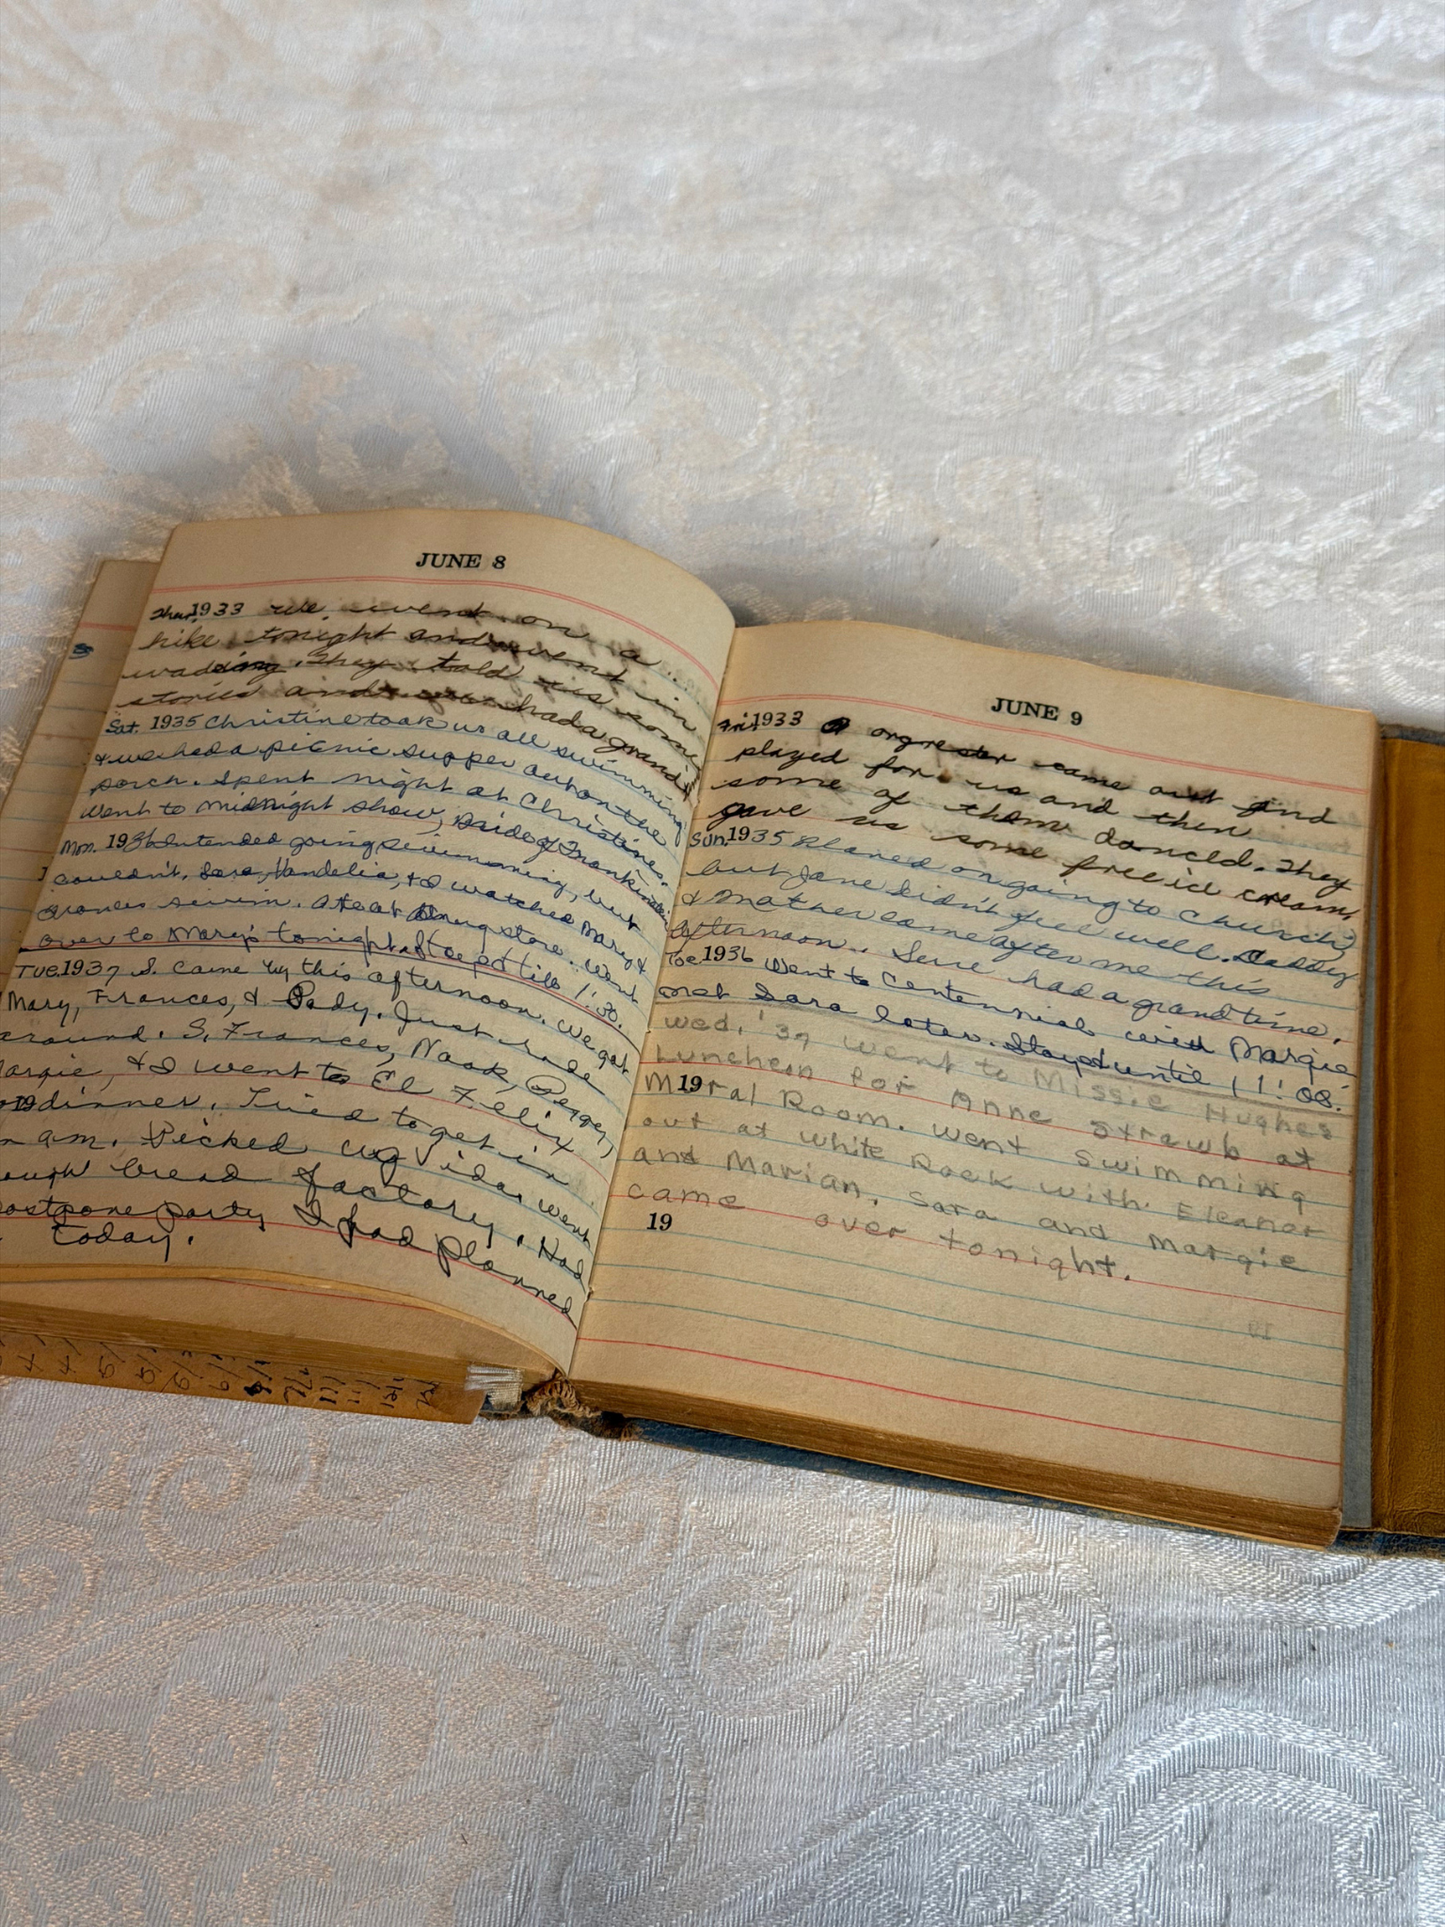 JUNE 8
Thur. 1933 We went on a
hike tonight and went in
wadding. They told us some
stories and we had a grand
Sat. 1935 Christine took us all swimming
& we had a picnic supper out on the
porch. Spent night at Christine's.
Went to midnight show, Bride of Frankinstein
Mon. 1936 Intended going swimming, but
couldn't. Sara, Vandelia, & I watched Mary &
Frances swim. Ate at drugstore. Went
over to Mary's tonight. Stayed till 1:30.
Tue. 1937 S. came by this afternoon. We got
Mary, Frances, & Pady. Just rode
around. S, Frances, Naak,
Margie, & I went to El Felix
for dinner. Tried to get in
19
am. Picked up Vida, went
bread factory. Had
postpone party I had planned
today.
JUNE 9
Fri. 1933 A orgrester came out and
played for us and then
some of them danced. They
gave us some free ice cream
Sun. 1935 Planed on going to church,
but Jane didn't feel well. Daddy
& Mother came after me this
afternoon. Sure had a grand time.
Tue 1936 Went to Centennial with Margie
met Sara later. Stayed until 11:08.
Wed, '37 Went to Missie Hughes
Luncheon for Anne Strawb at
19
Mural Room. Went swimming
out at White Rock with Eleanor
and Marian. Sara and Margie
came over tonight.
19